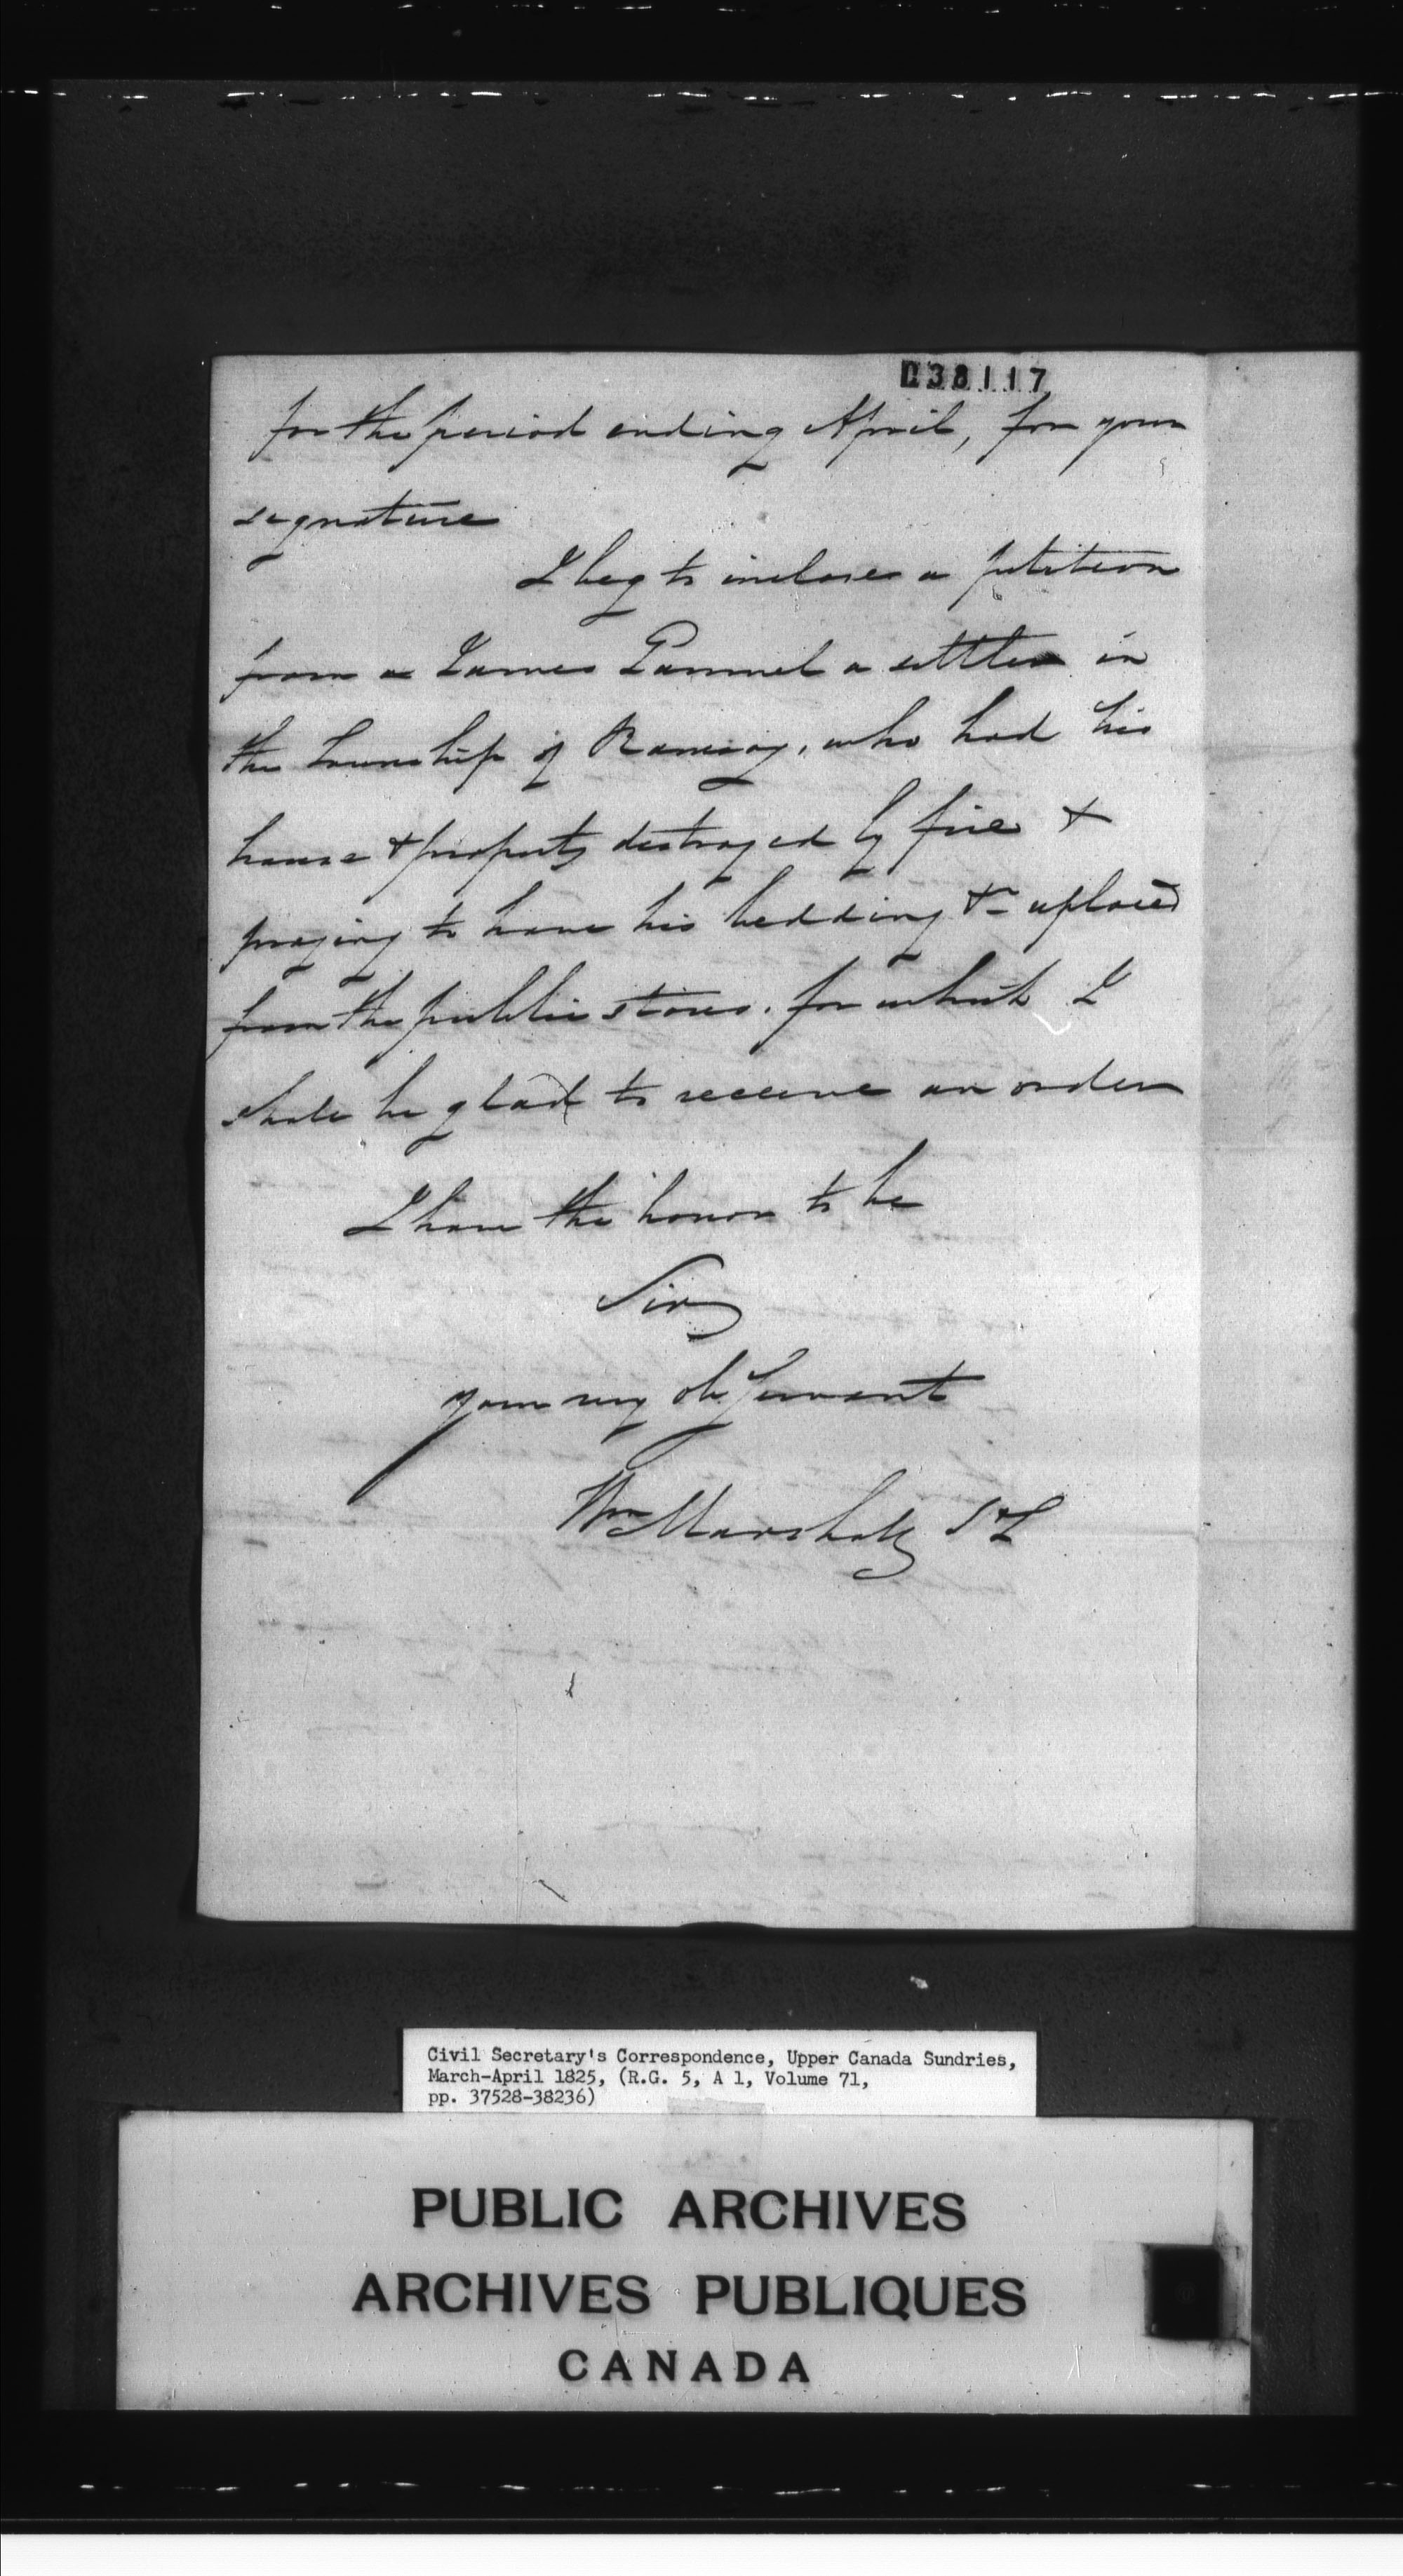 038117
for the period ending April, for your
signature
I beg to inclose a petition
from a James Gammel a settler in
the Township of Ramsay, who had his
house & property destroyed by fire &
praying to have his bedding &c replaced
from the public stores. for which I
shall be glad to receive an order
I have the honor to be
Sir
your very ob Servant
Wm Marshall
Civil Secretary's Correspondence, Upper Canada Sundries,
March-April 1825, (R.G. 5, A 1, Volume 71,
pp. 37528-38236)
PUBLIC ARCHIVES
ARCHIVES PUBLIQUES
CANADA